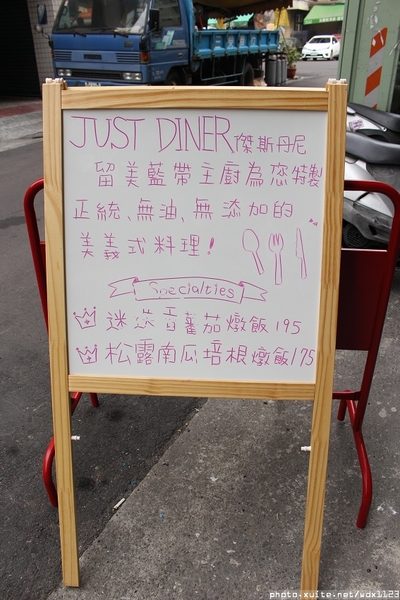 JUST DINER 傑斯丹尼
留美藍帶主廚為您特製
正統、無油、無添加的
美義式料理!
Specialties
迷迭香蕃茄燉飯 195
松露南瓜培根燉飯175
photo.xuite.net/wdx1123